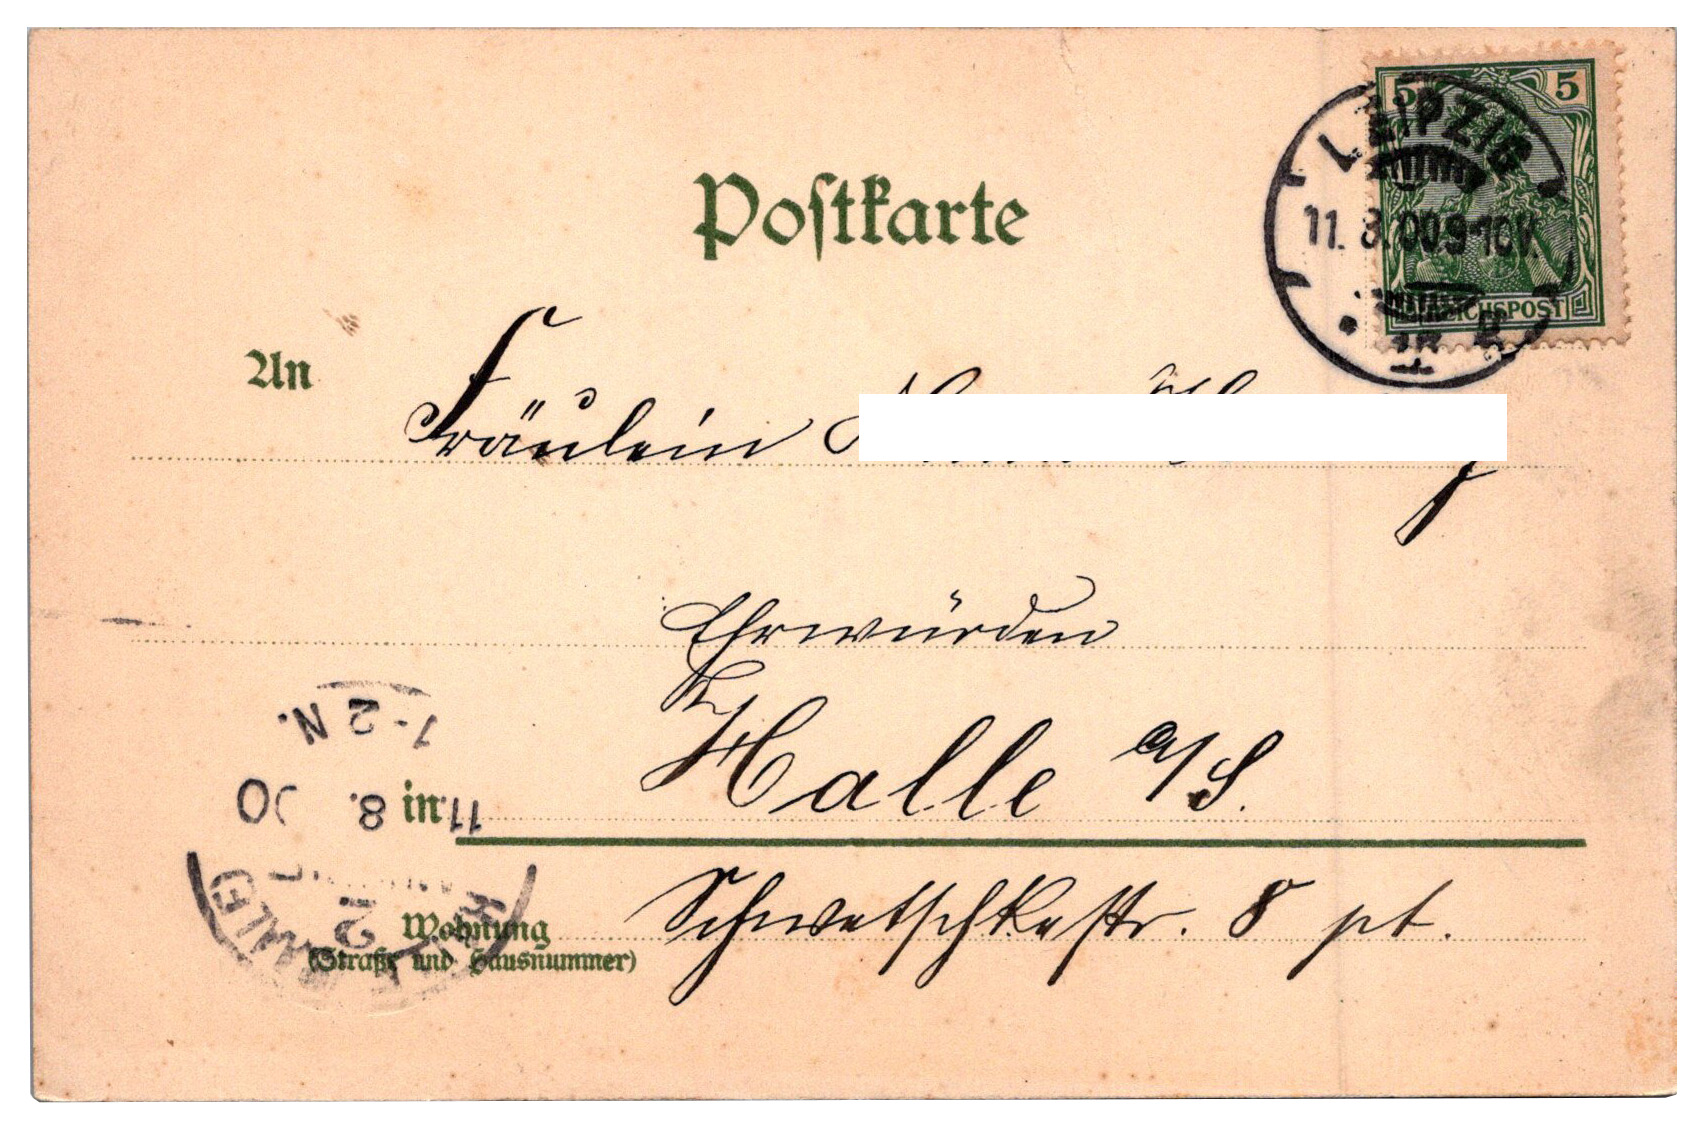 Postkarte
5 5
LEIPZIG
11.8.00.9-10V.
REICHSPOST
An
Fräulein
Ehrwürden
Halle a/S.
in
Schwetschkestr. 8 pt.
Wohnung
(Straße und Hausnummer)
1-2 N.
11. 8. 00
2